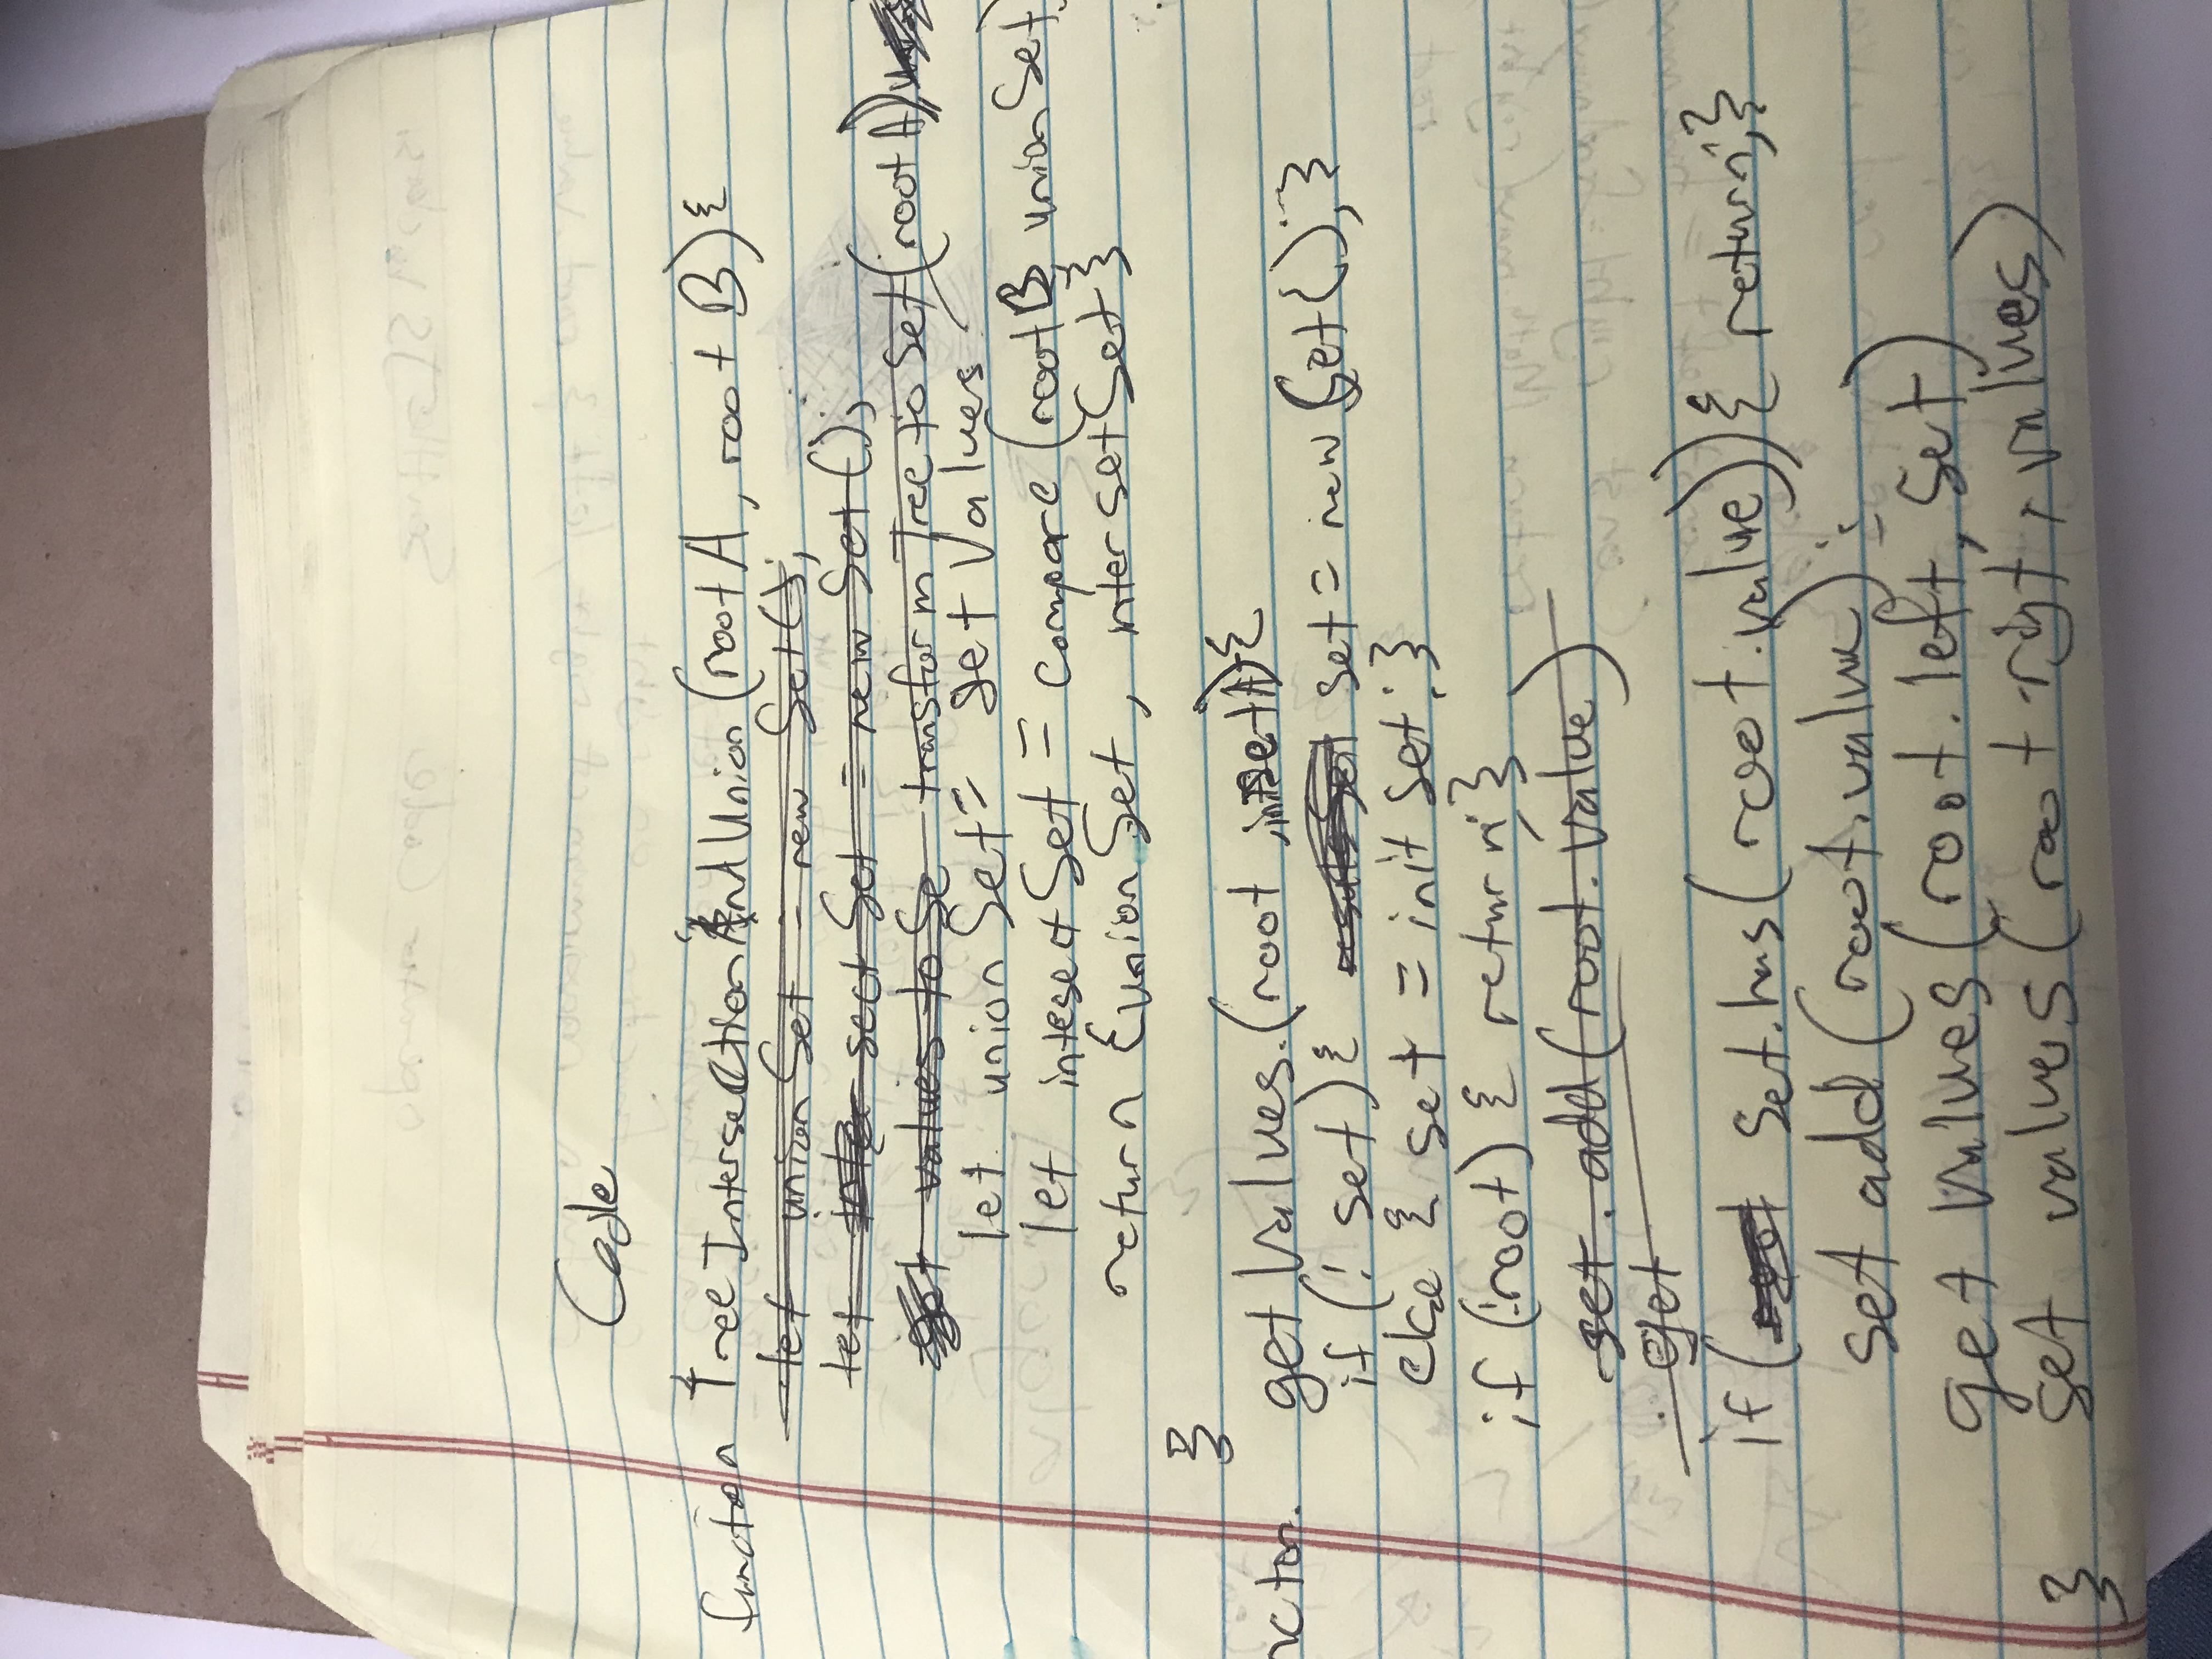 Code
function TreeIntersectionAndUnion (rootA, rootB) {
let unionSet = new Set();
let inte sect Set = new Set();
get values to Se transform Tree to Set (rootA),
let unionSet = getValues
let intesectSet = compare (rootB, unionSet)
return {unionSet, intersetSet}
}
getValues.(root, {
if (! set) { set = new Set(); }
else { set = init Set; }
if (!root) { return; }
set.add(root.value)
get
if ( Set.has(root.value)) { return; }
set add (root.value);
get Values (root.left, Set)
set values (root.right, values)
}